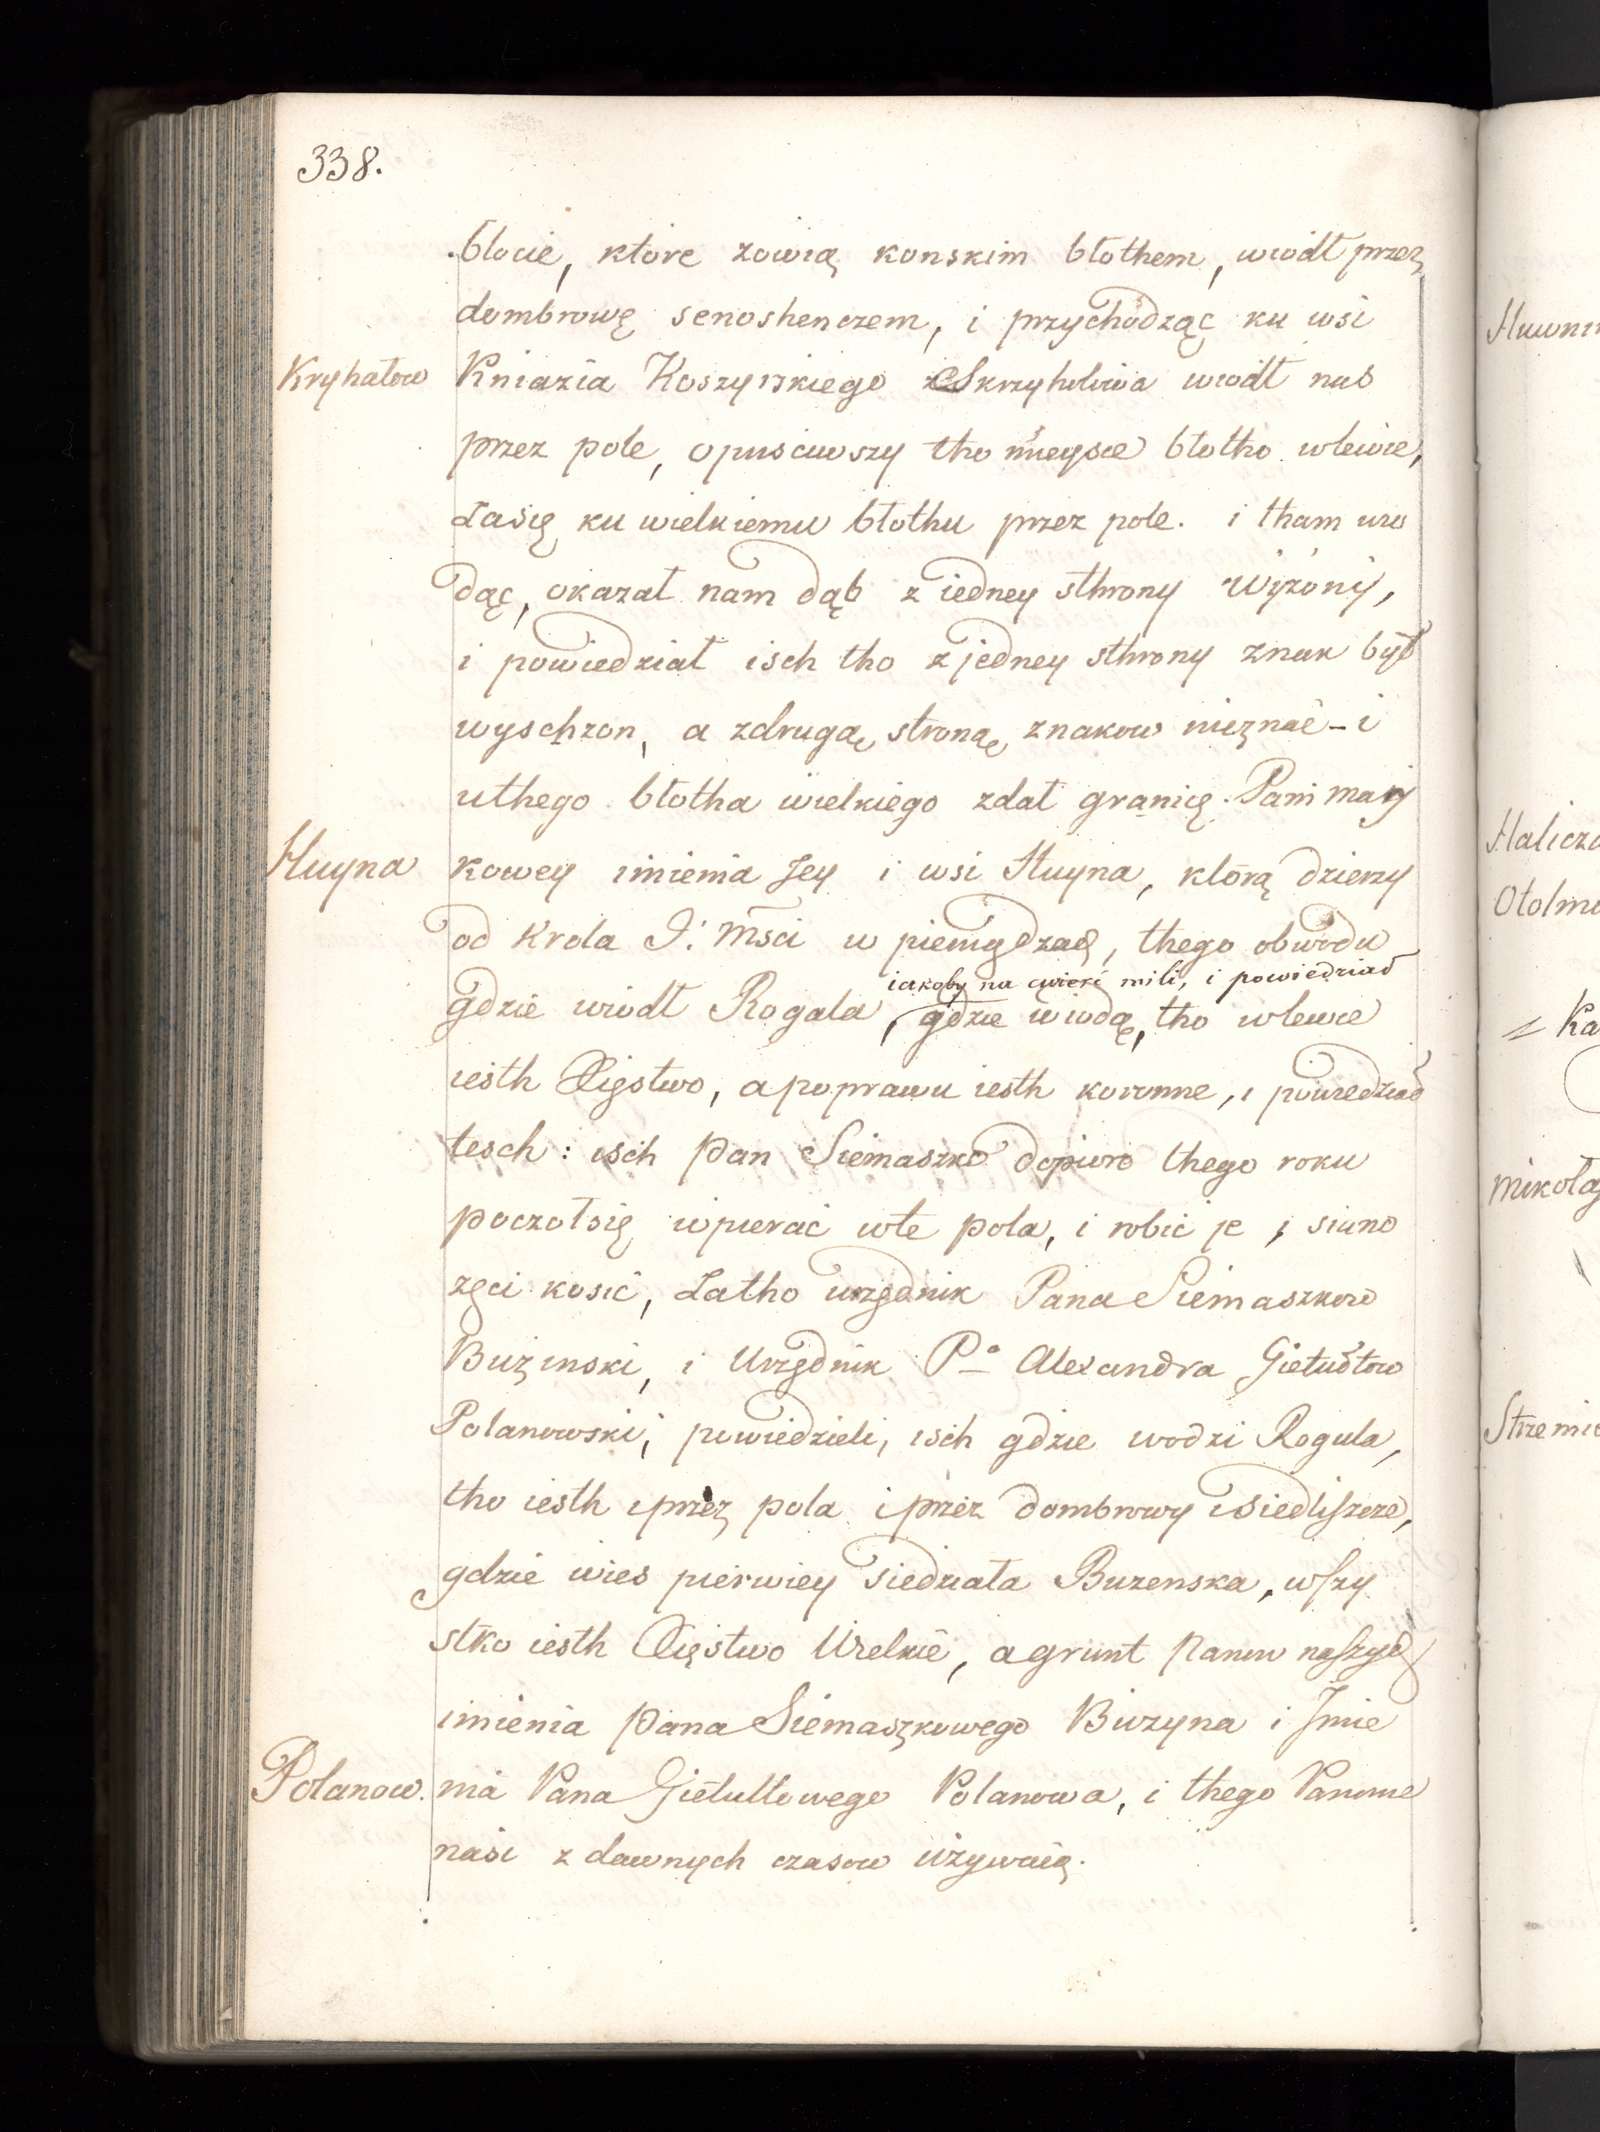 338.
błocie, które zowią konskim błothem, wiódł przez
dombrowę senoshenczem, i przychodząc ku wsi
Kryhatow Kniazia Koszyrskiego wiodł nas
przez pole, opusciwszy tho mieysce błotho wlewie,
Zasię ku wielkiemu błothu przez pole. i tham wio
dąc, okazał nam dąb z iedney sthrony
i powiedział isch tho z jedney sthrony znak był
a zdrugą stroną znakow nieznać - i
uthego błotha wielkiego zdał granicę. Pani
Huyna kowey imienia Jey i wsi Huyna, którą dzierzy
od Krola J: Mśći w pieniądzach, thego obwodu
iakoby na ćwierć mili, i powiedział
gdzie wiodł Rogala, gdzie wiodę, tho wlewie
iesth Xięstwo, apoprawu iesth koronne, i powiedział
tesch: isch Pan Siemaszko dopiero thego roku
poczołsię wpierać wte pola, i robić je, siano
żęci kosić, Zatho urzędnik Pana Siemaszkow
Buzinski, i Urzędnik Pᵃ Alexandra Giełułtow
Polanowski, powiedzieli, isch gdzie wodzi Rogala,
tho iesth iprzez pola iprzez dombrowy isiedliszcze,
gdzie wies pierwiey siedziała Buzenska, wszy
stko iesth Xięstwo Wielkie, a grunt Panow naszych
imienia Pana Siemaszkowego Buzyna i Jmie
Polanow. nia Pana Giełułtowego Polanowa, i thego Panowie
nasi z dawnych czasow używaią.
Halicza
Mikołaj